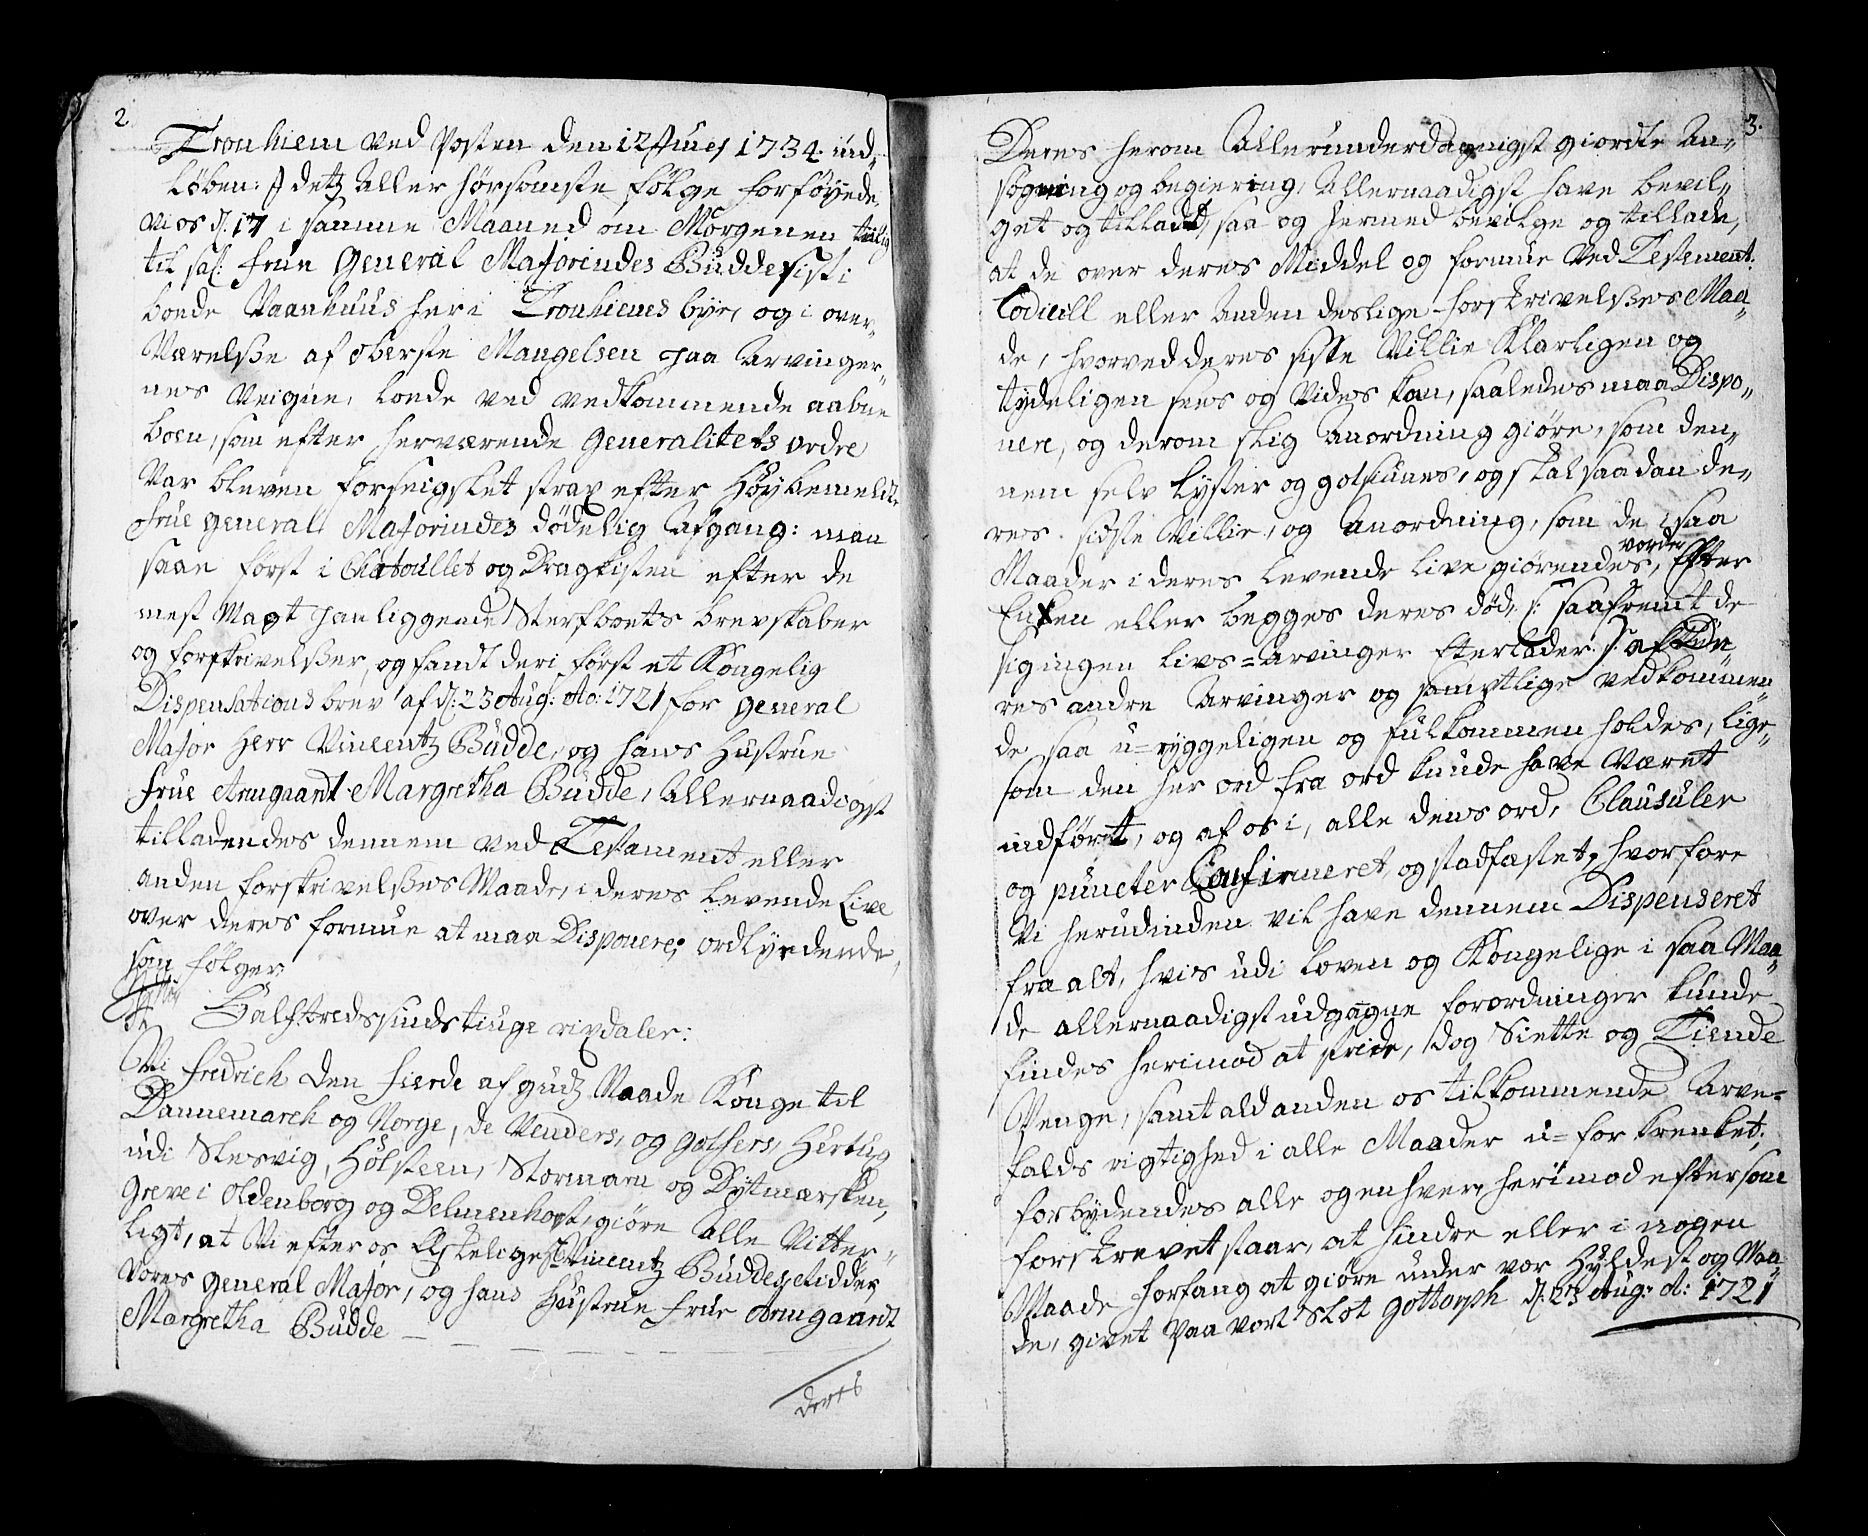 2
Tronhiem ved Posten den 12 Junij 1734. ind„
løben: I detz aller hørsomste følge forføyede
vi os d: 17 i samme Maaned om Morgenen tiilig
til sal: Frue General Majorindes Budde sist i
boede Vaanhuus her i Tronhiems bye, og i over„
Værelsse af Oberste Mangelsen paa Arvinger„
nes Veigne, loede ved vedkommende aabne
boen, som efter herværende Generalitets ordre
Var bleven forseiglet strax efter Høybemelte
Frue General Majorindes dødelig Afgang: man
saae først i Chatoullet og Dragkisten efter de
mest Magt paaliggende Sterfboets brevskaber
og forskrivelsser, og fandt deri først et Kongelig
Dispensations brev af d: 23 Aug: Ao: 1721 for General
Major Herr Vincentz Budde, og hans Hustrue
Frue Armgaart Margretha Budde, Allernaadigst
tilladendes dennem ved Testament eller
anden forskrivelsses Maade, i deres Levende Live
over deres formue at maa Disponere; ordlydende,
som følger
Halftredssindstiuge rixdaler:
Vi Fredrich den Fierde af Gudz Naade Konge til
Dannemarch og Norge, de Venders, og Gothers, Hertug
udi Slesvig, Holsteen, Stormarn og Dytmersken,
Greve i Oldenborg og Delmenhorst, giøre Alle Vitter„
ligt, at Vi efter os Elskelige Hr Vincentz Buddes, Ridder
Vores General Major, og hans Hustrue Frue Armgaardt
Margretha Budde
deres
3.
Deres herom Allerunderdanigst giordte An„
søgning og begiering, Allernaadigst have bevil„
get og tilladt, saa og hermed bevilge og tillade,
at de over deres Middel og formue ved Testement.
Codicill eller Anden deslige forskrivelsses Maa„
de, hvorved deres siste Villie Klarligen og
tydeligen sees og Vides kan, saaledes maa Dispo„
nere, og derom slig Anordning giøre, som den„
nem selv lyster og gotsiunes, og skal saadan de„
res sidste Villie, og Anordning, som de i saa
vorder
Maader i deres Levende Live giørendes, Efter
Enten eller begges deres død, (: saafremt de
sig ingen Livs=Arvinger Efterlader :) af de„
res andre Arvinger og samptlige vedkommen„
de saa u=ryggeligen og fulkommen holdes, lige„
som den her ord fra ord kunde have Været
indført, og af os i, alle dens ord, Clausuler
og puncter Confirmeret og stadfæstet, hvorfore
Vi herudinden vil have dennem Dispenseret
fra alt, hvis udi Loven og Kongelige i saa Maa„
de allernaadigst udgangne forordninger kunde
findes herimod at stride, dog Siette og Tiende
Penge, samt ald anden os tilkommende Arve=
falds rigtighed i alle Maader u=forkrenket;
forbydendes alle og enhver herimod eftersom
forskrevet staar, at hindre eller i nogen
Maade forfang at giøre under vor Hyldest og Naa„
de, givet paa vort Slot Gottorph d: 23 Aug: A: 1721